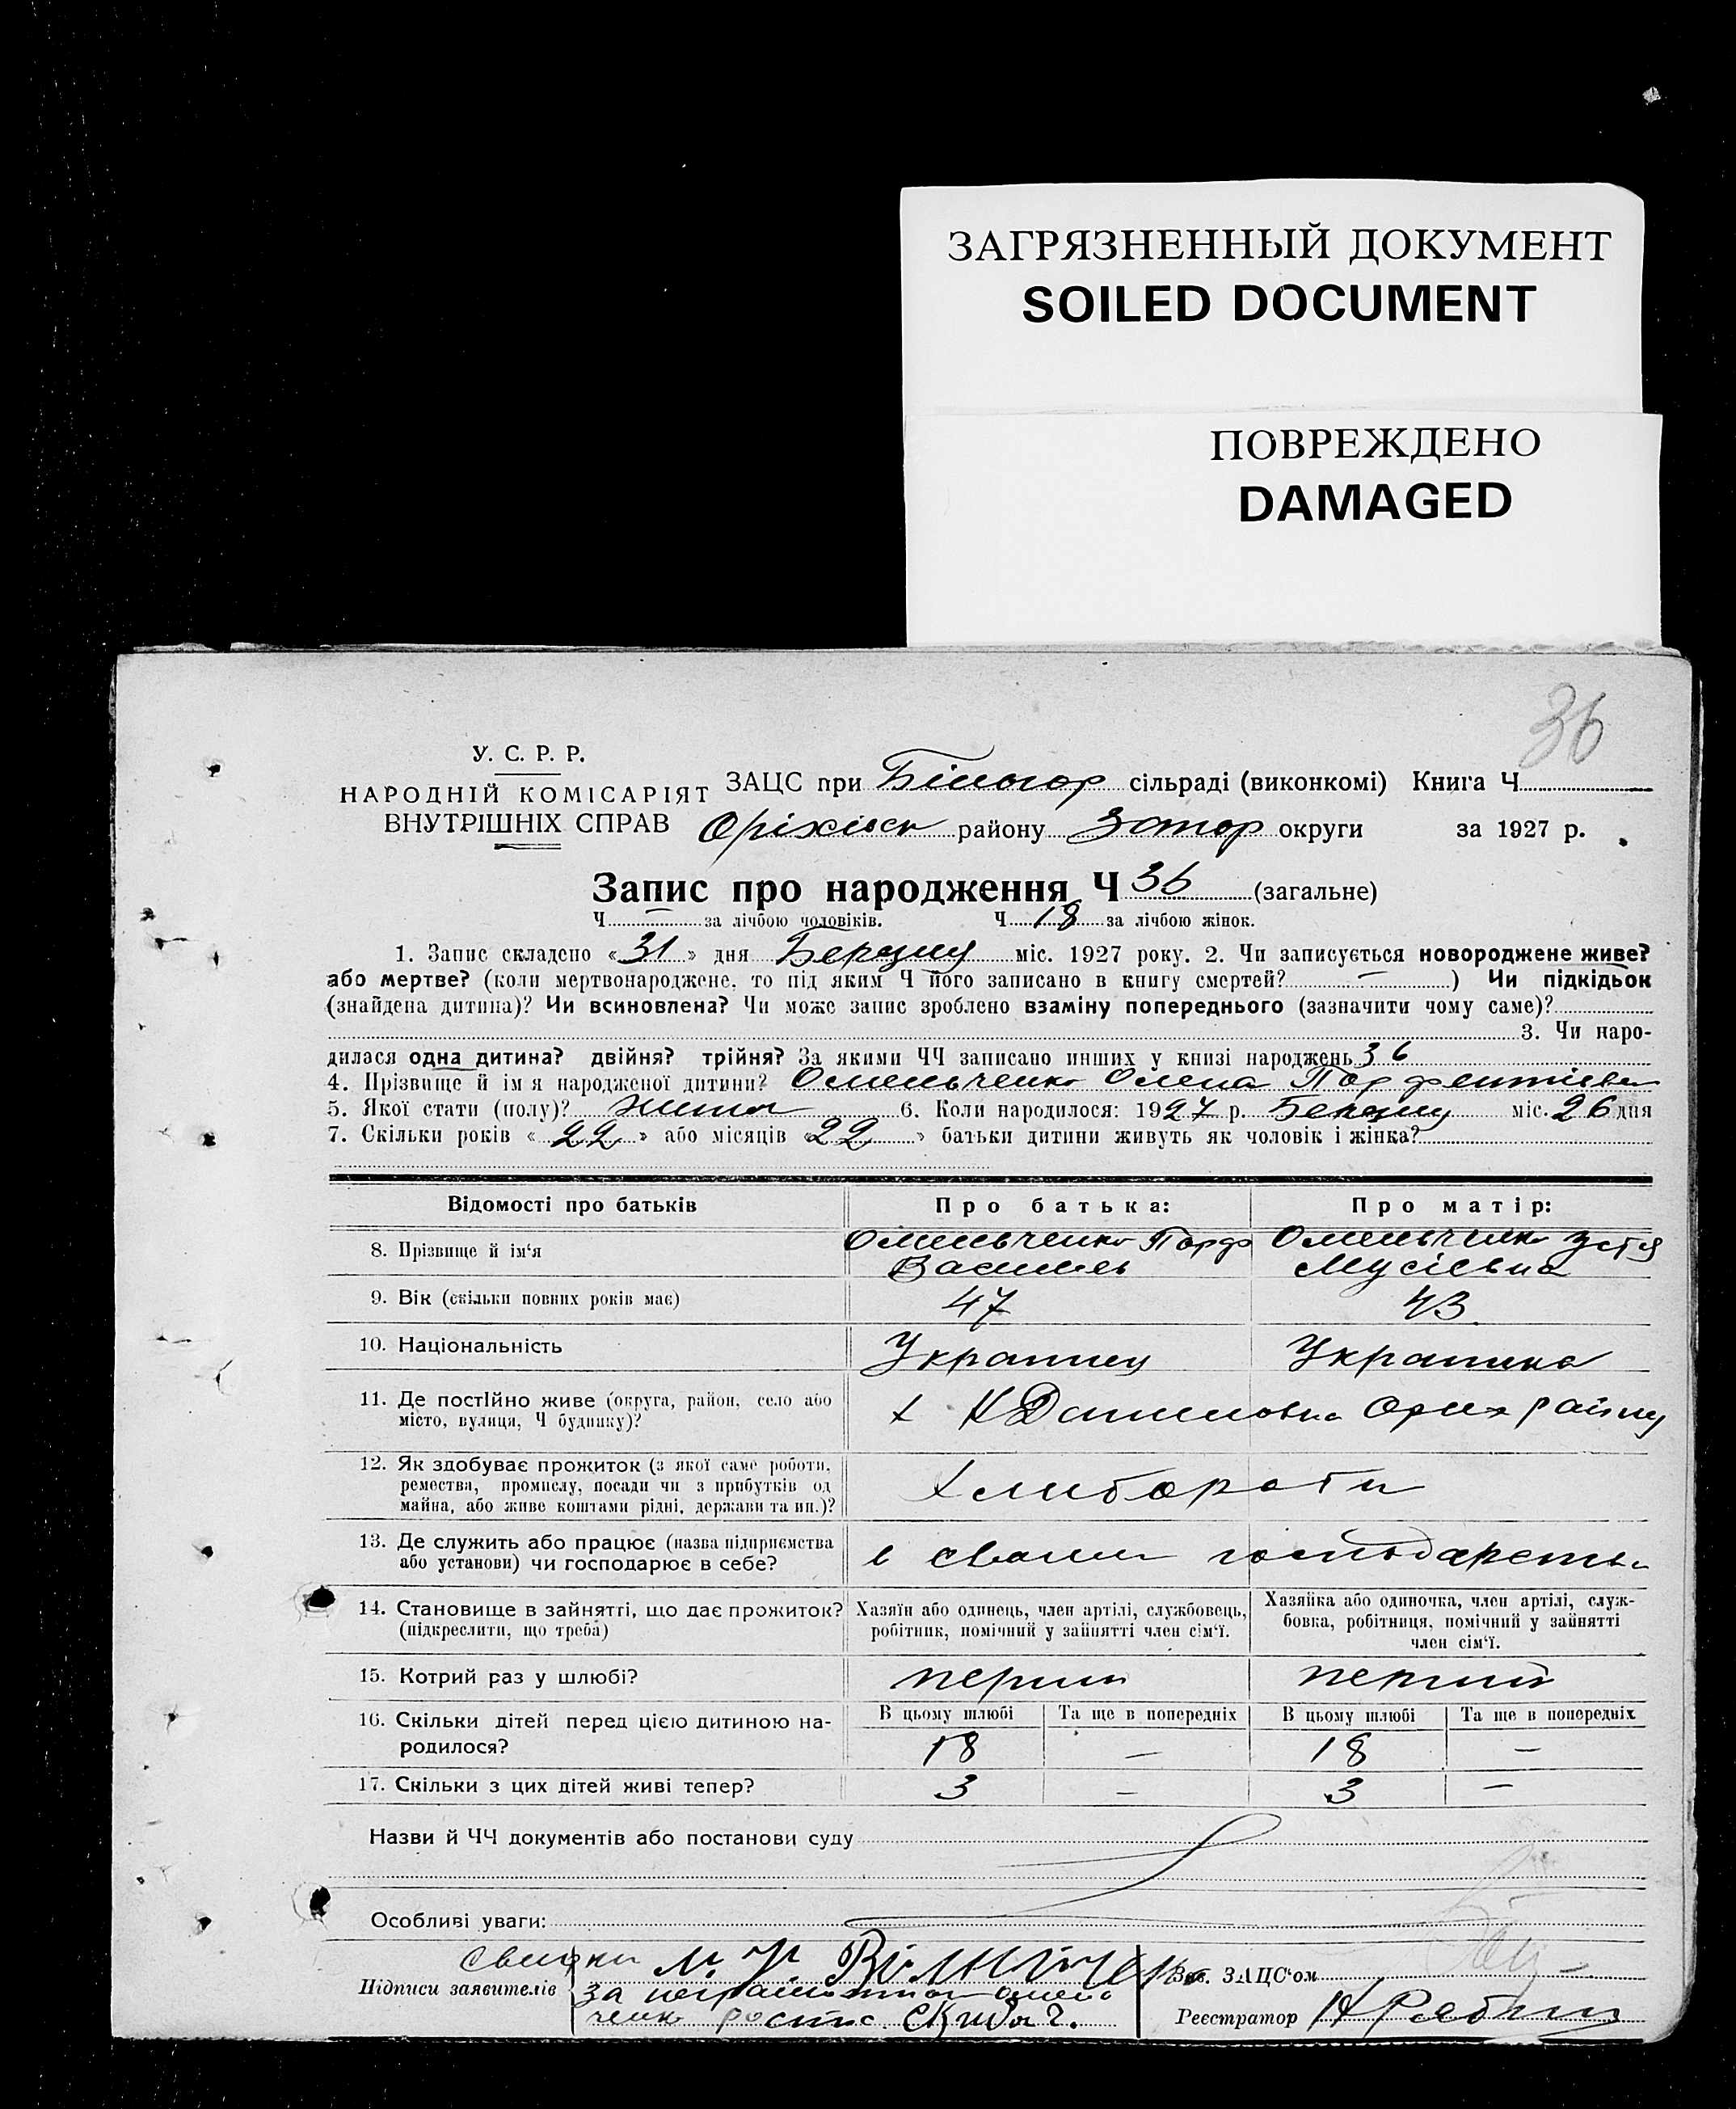 ЗАГРЯЗНЕННЫЙ ДОКУМЕНТ
SOILED DOCUMENT
ПОВРЕЖДЕНО
DAMAGED
36
У. С. Р. Р.
НАРОДНІЙ КОМІСАРІЯТ
ВНУТРІШНІХ СПРАВ
ЗАЦС при Білогор сільраді (виконкомі) Книга Ч
Оріхівск району Запор округи за 1927 р.
Запис про народження Ч 36 (загальне)
Ч — за лічбою чоловіків. Ч 18 за лічбою жінок.
1. Запис складено «31» дня Березня міс. 1927 року. 2. Чи записується новороджене живе?
або мертве? (коли мертвонароджене, то під яким Ч його записано в книгу смертей? — ) Чи підкідьок
(знайдена дитина)? Чи всиновлена? Чи може запис зроблено взаміну попереднього (зазначити чому саме)?
3. Чи наро-
дилася одна дитина? двійня? трійня? За якими ЧЧ записано инших у книзі народжень 36
4. Прізвище й ім'я народженої дитини? Омельченко Олена Парфентіевна
5. Якої стати (полу)? 6. Коли народилося: 1927 р. Березня міс. 26 дня
7. Скільки років «22» або місяців «22» батьки дитини живуть як чоловік і жінка?
Відомості про батьків Про батька: Про матір:
8. Прізвище й ім'я Омельченко Парф Омельченко Устя
Василев Мусіевна
9. Вік (скільки повних років має) 47 43
10. Національність Украинец Украинка
11. Де постійно живе (округа, район, село або
місто, вулиця, Ч будинку)? х Н Даниловка Орих району
12. Як здобуває прожиток (з якої саме роботи,
ремества, промислу, посади чи з прибутків од
майна, або живе коштами рідні, держави та ин.)? Хлибороби
13. Де служить або працює (назва підприємства
або установи) чи господарює в себе? в своем господарстві
14. Становище в зайнятті, що дає прожиток?
(підкреслити, що треба)
Хазяїн або одинець, член артілі, службовець,
робітник, помічний у зайнятті член сім'ї.
Хазяйка або одиночка, член артілі, служ-
бовка, робітниця, помічний у зайнятті
член сім'ї.
15. Котрий раз у шлюбі? перший перший
16. Скільки дітей перед цією дитиною на-
родилося?
В цьому шлюбі Та ще в попередніх В цьому шлюбі Та ще в попередніх
18 — 18 —
17. Скільки з цих дітей живі тепер? 3 — 3 —
Назви й ЧЧ документів або постанови суду
Особливі уваги:
Свидки
Підписи заявителів
за неграмотного Омель
ченко роспис
Зав. ЗАЦС'ом
Реєстратор